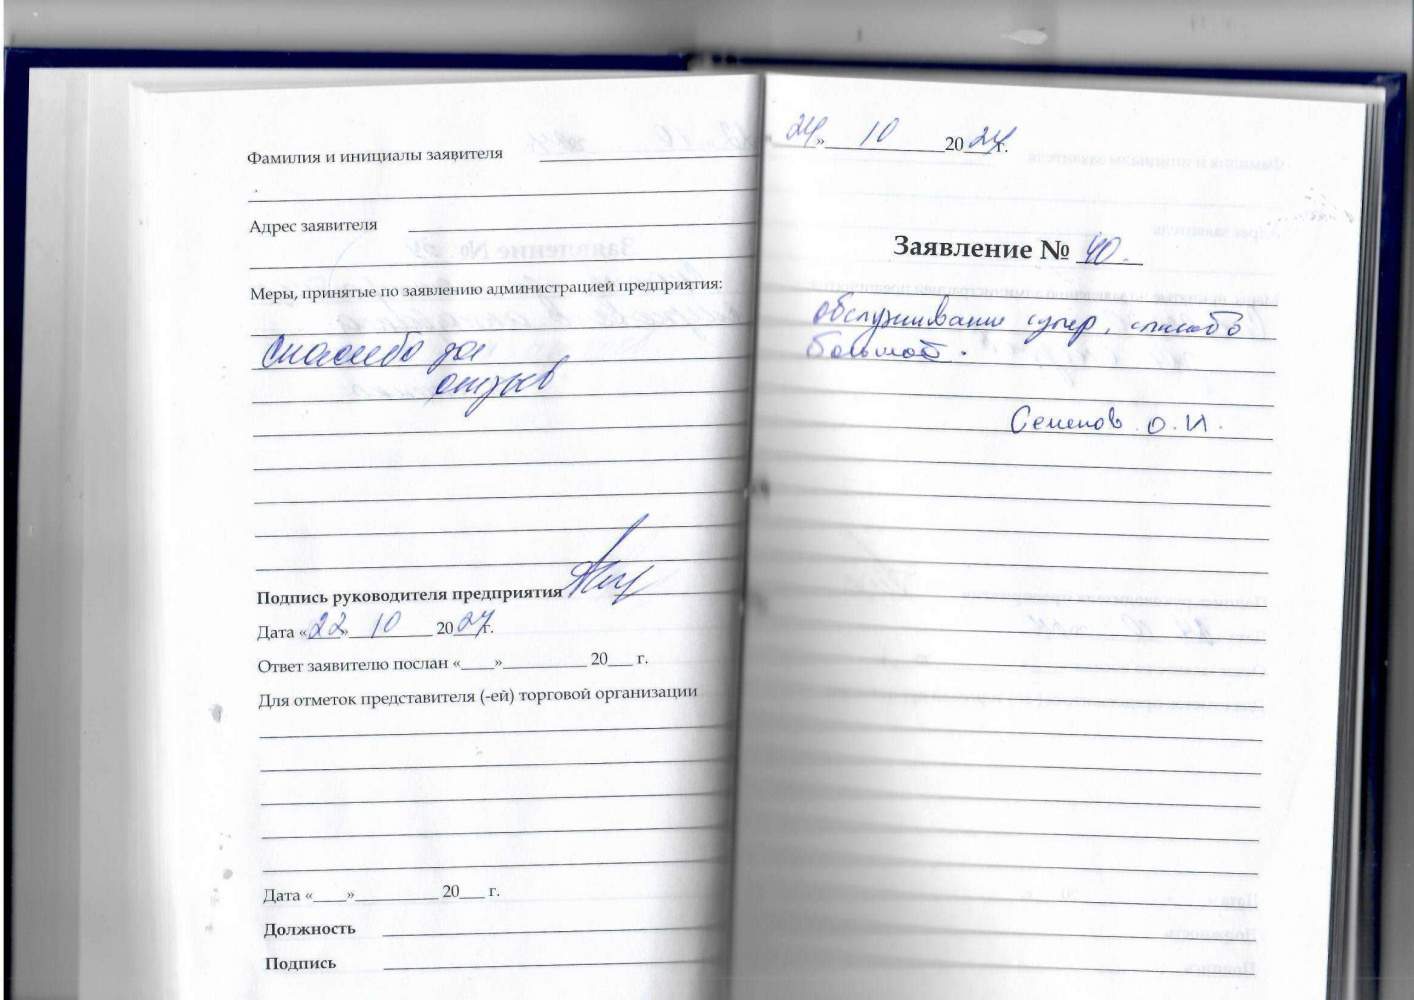 Фамилия и инициалы заявителя
Адрес заявителя
Меры, принятые по заявлению администрацией предприятия:
Спасибо за
отзыв
Подпись руководителя предприятия
Дата «22» 10 2024г.
Ответ заявителю послан «____»__________ 20___ г.
Для отметок представителя (-ей) торговой организации
Дата «____»__________ 20___ г.
Должность
Подпись
24» 10 2024г.
Заявление № 40.
обслуживание супер, спасибо
большое.
Семенов О.И.